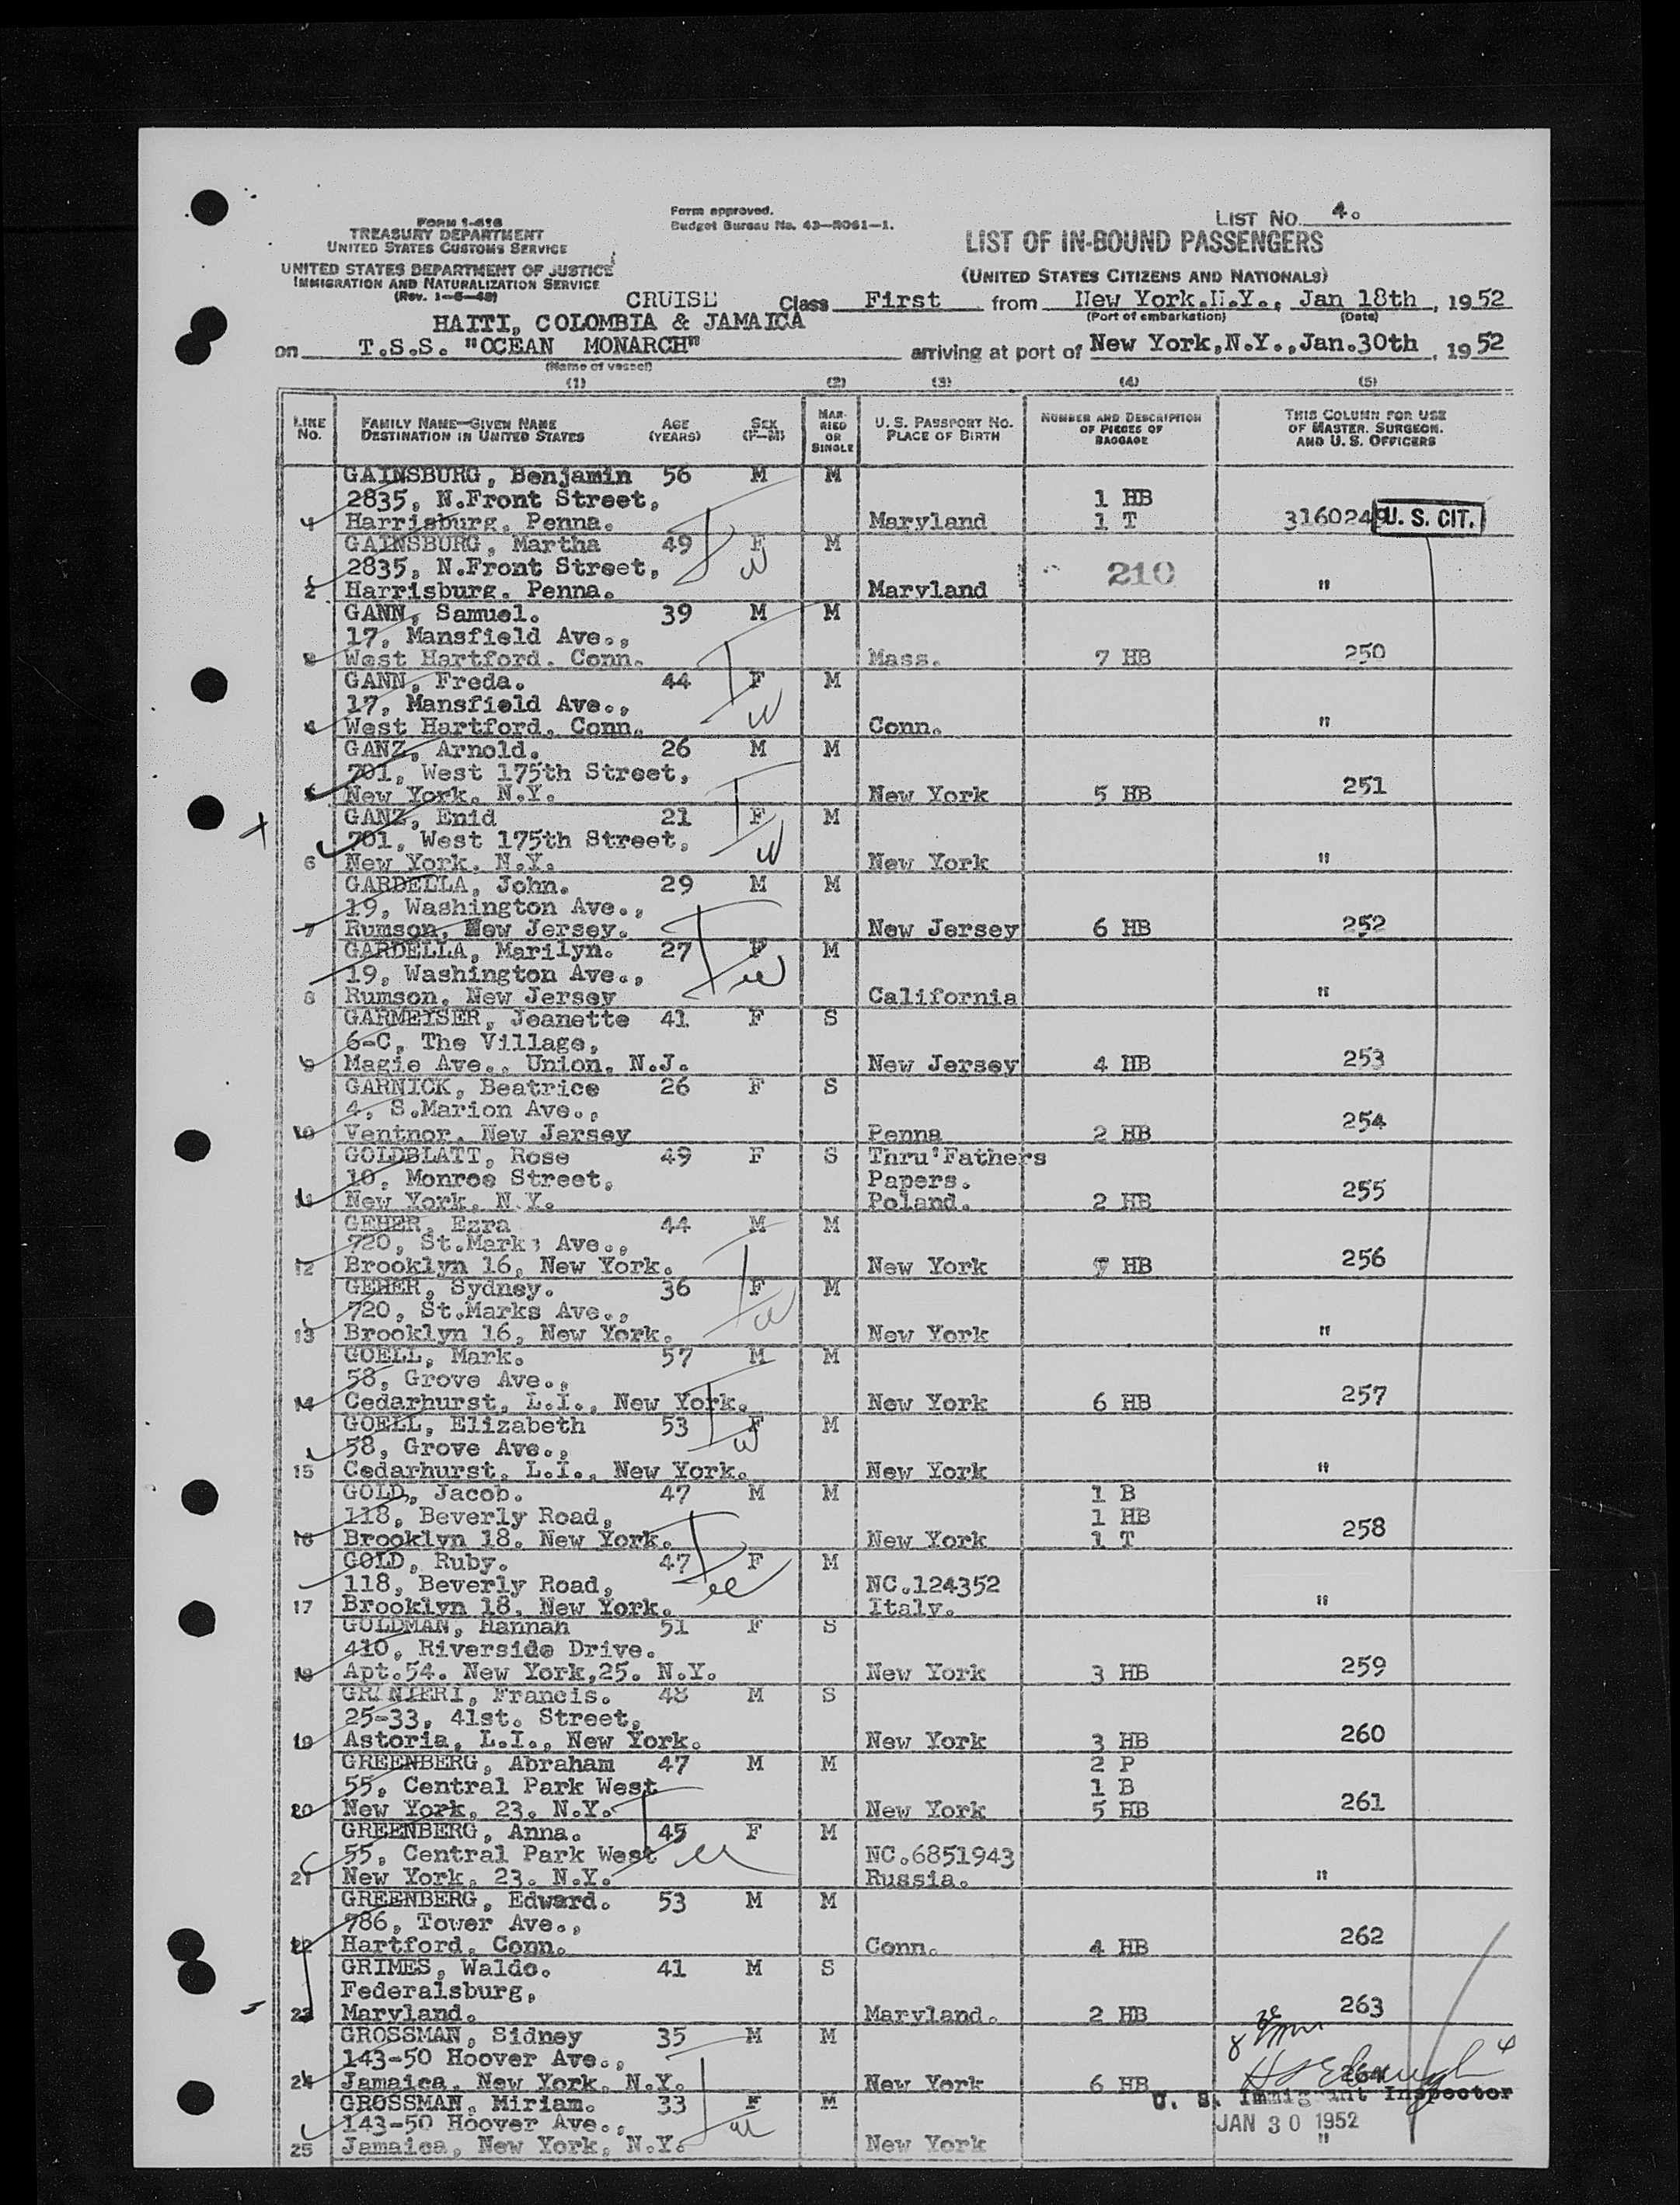 FORM I-416
TREASURY DEPARTMENT
UNITED STATES CUSTOMS SERVICE
UNITED STATES DEPARTMENT OF JUSTICE
IMMIGRATION AND NATURALIZATION SERVICE
(Rev. 1-6-49)
Form approved.
Budget Bureau No. 43-R061-1.
LIST NO. 4.
LIST OF IN-BOUND PASSENGERS
(UNITED STATES CITIZENS AND NATIONALS)
CRUISE Class First from New York.N.Y., Jan 18th, 1952
(Port of embarkation) (Date)
HAITI, COLOMBIA & JAMAICA
on T.S.S. "OCEAN MONARCH" arriving at port of New York,N.Y.,Jan.30th, 1952
(Name of vessel)
(1) (2) (3) (4) (5)
LINE NO. FAMILY NAME—GIVEN NAME DESTINATION IN UNITED STATES AGE (YEARS) SEX (F-M) MARRIED OR SINGLE U. S. PASSPORT NO. PLACE OF BIRTH NUMBER AND DESCRIPTION OF PIECES OF BAGGAGE THIS COLUMN FOR USE OF MASTER, SURGEON, AND U. S. OFFICERS
GAINSBURG, Benjamin 56 M M
2835, N.Front Street, 1 HB
Harrisburg. Penna. Maryland 1 T 3160249 U. S. CIT.
GAINSBURG, Martha 49 F M
2835, N.Front Street, 210
2 Harrisburg. Penna. Maryland "
GANN, Samuel. 39 M M
17, Mansfield Ave.,
3 West Hartford. Conn. Mass. 7 HB 250
GANN, Freda. 44 F M
17, Mansfield Ave.,
4 West Hartford. Conn. Conn. "
GANZ, Arnold. 26 M M
701, West 175th Street,
5 New York. N.Y. New York 5 HB 251
GANZ, Enid 21 F M
701, West 175th Street,
6 New York. N.Y. New York "
GARDELLA, John. 29 M M
19, Washington Ave.,
7 Rumson, New Jersey. New Jersey 6 HB 252
GARDELLA, Marilyn. 27 F M
19, Washington Ave.,
8 Rumson, New Jersey California "
GARMEYSER, Jeanette 41 F S
6-C, The Village,
9 Magie Ave., Union, N.J. New Jersey 4 HB 253
GARNICK, Beatrice 26 F S
4, S.Marion Ave.,
10 Ventnor. New Jersey Penna 2 HB 254
GOLDBLATT, Rose 49 F S Thru'Fathers
10, Monroe Street, Papers.
11 New York. N.Y. Poland. 2 HB 255
GEHER, Ezra 44 M M
720, St.Marks Ave.,
12 Brooklyn 16, New York. New York 7 HB 256
GEHER, Sydney. 36 F M
720, St.Marks Ave.,
13 Brooklyn 16, New York. New York "
GOELL, Mark. 57 M M
58, Grove Ave.,
14 Cedarhurst, L.I., New York. New York 6 HB 257
GOELL, Elizabeth 53 F M
58, Grove Ave.,
15 Cedarhurst. L.I., New York. New York "
GOLD, Jacob. 47 M M 1 B
118, Beverly Road, 1 HB
16 Brooklyn 18. New York. New York 1 T 258
GOLD, Ruby. 47 F M
118, Beverly Road, NC.124352
17 Brooklyn 18. New York. Italy. "
GOLDMAN, Hannah 51 F S
410, Riverside Drive.
18 Apt.54. New York,25. N.Y. New York 3 HB 259
GRANIERI, Francis. 48 M S
25-33, 41st. Street,
19 Astoria, L.I., New York. New York 3 HB 260
GREENBERG, Abraham 47 M M 2 P
55, Central Park West 1 B
20 New York, 23. N.Y. New York 5 HB 261
GREENBERG, Anna. 45 F M
55, Central Park West NC.6851943
21 New York, 23. N.Y. Russia. "
GREENBERG, Edward. 53 M M
786, Tower Ave.,
22 Hartford. Conn. Conn. 4 HB 262
GRIMES, Waldo. 41 M S
Federalsburg,
23 Maryland. Maryland. 2 HB 263
GROSSMAN, Sidney 35 M M
143-50 Hoover Ave.,
24 Jamaica, New York, N.Y. New York 6 HB 264
U. S. Immigrant Inspector
GROSSMAN, Miriam. 33 F M
143-50 Hoover Ave., JAN 30 1952
25 Jamaica, New York, N.Y. New York "